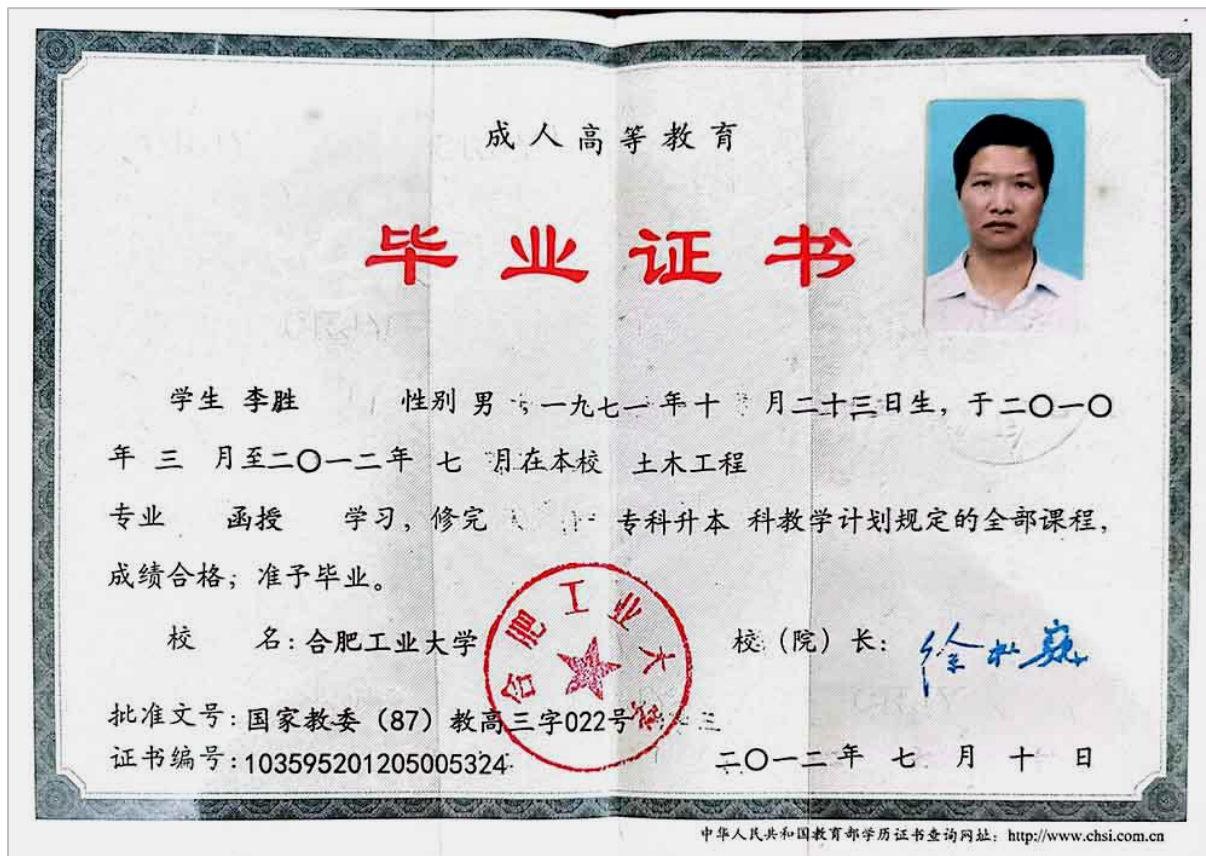 成人高等教育
毕业证书
学生 李胜 性别 男，一九七一年十 月二十三日生，于二〇一〇
年 三 月至二〇一二年 七 月在本校 土木工程
专业 函授 学习，修完 专科升本 科教学计划规定的全部课程，
成绩合格，准予毕业。
校 名：合肥工业大学
合肥工业大学
校（院）长：徐枞巍
批准文号：国家教委（87）教高三字022号
证书编号：103595201205005324
二〇一二年 七 月 十 日
中华人民共和国教育部学历证书查询网址：http://www.chsi.com.cn